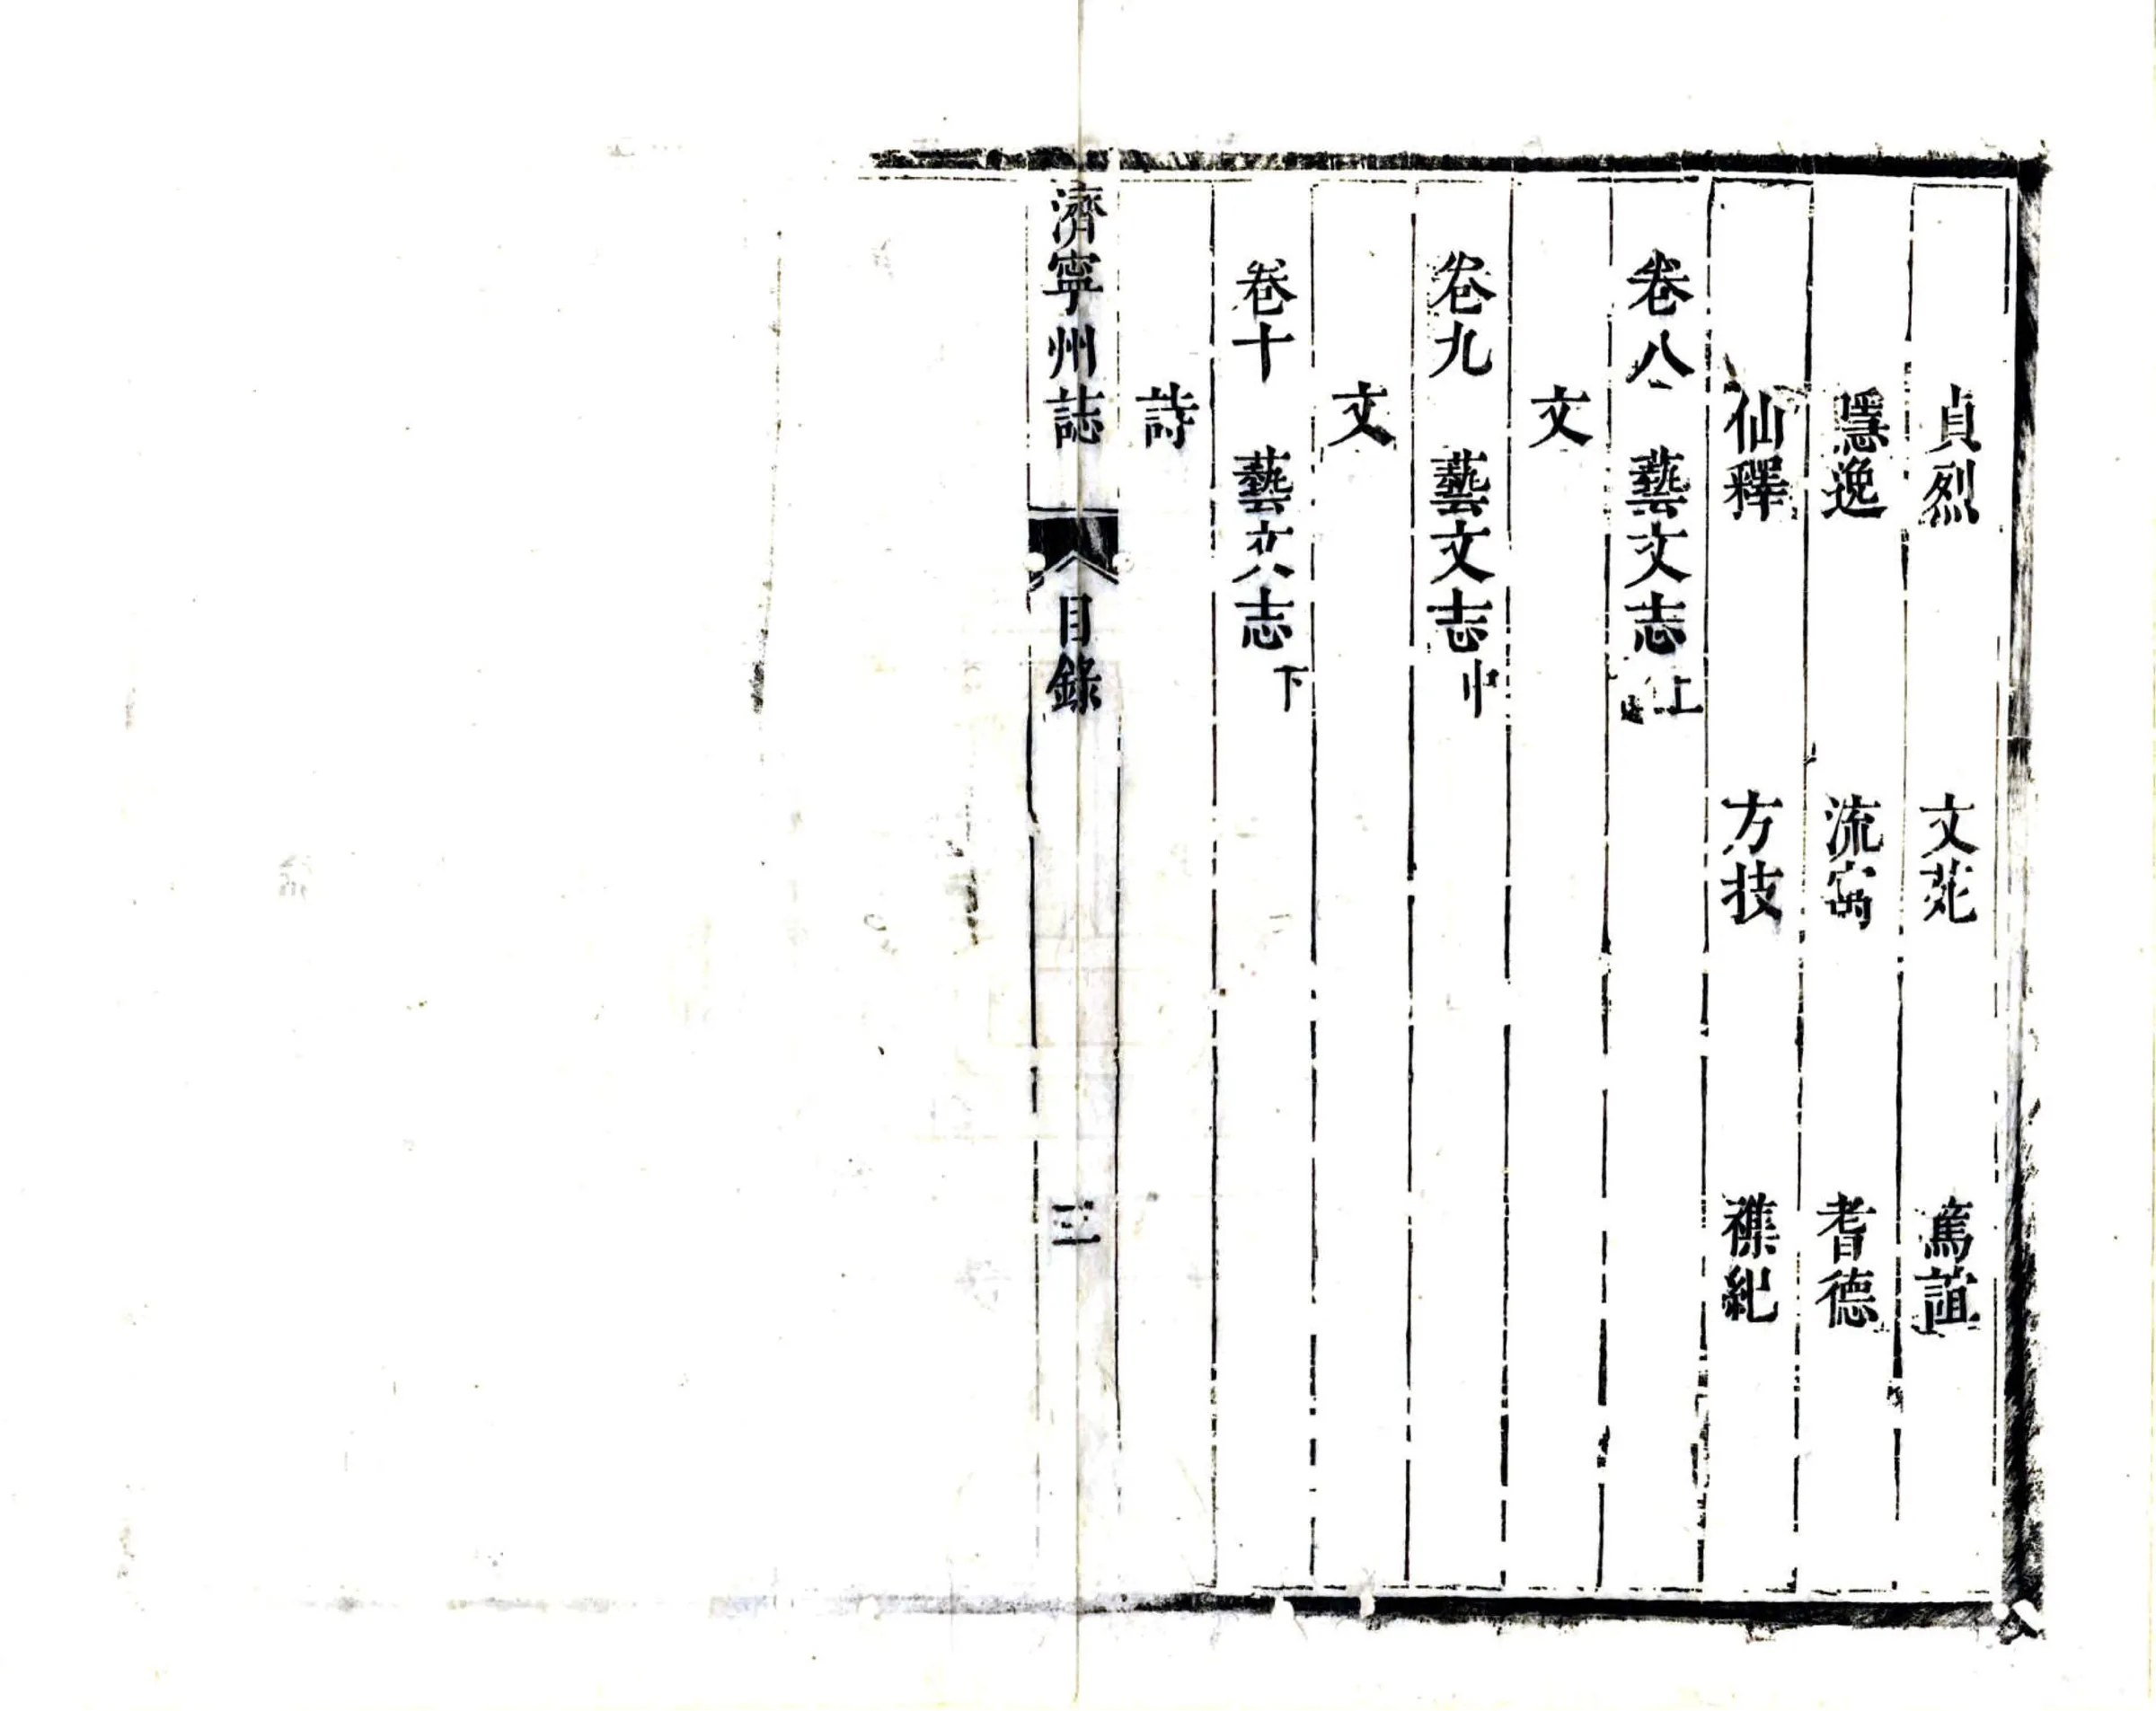 貞烈　文苑　篤誼
隱逸　流寓　耆德
仙釋　方技　襍紀
卷八　藝文志上
文
卷九　藝文志中
文
卷十　藝文志下
詩
濟寧州誌　目錄　三